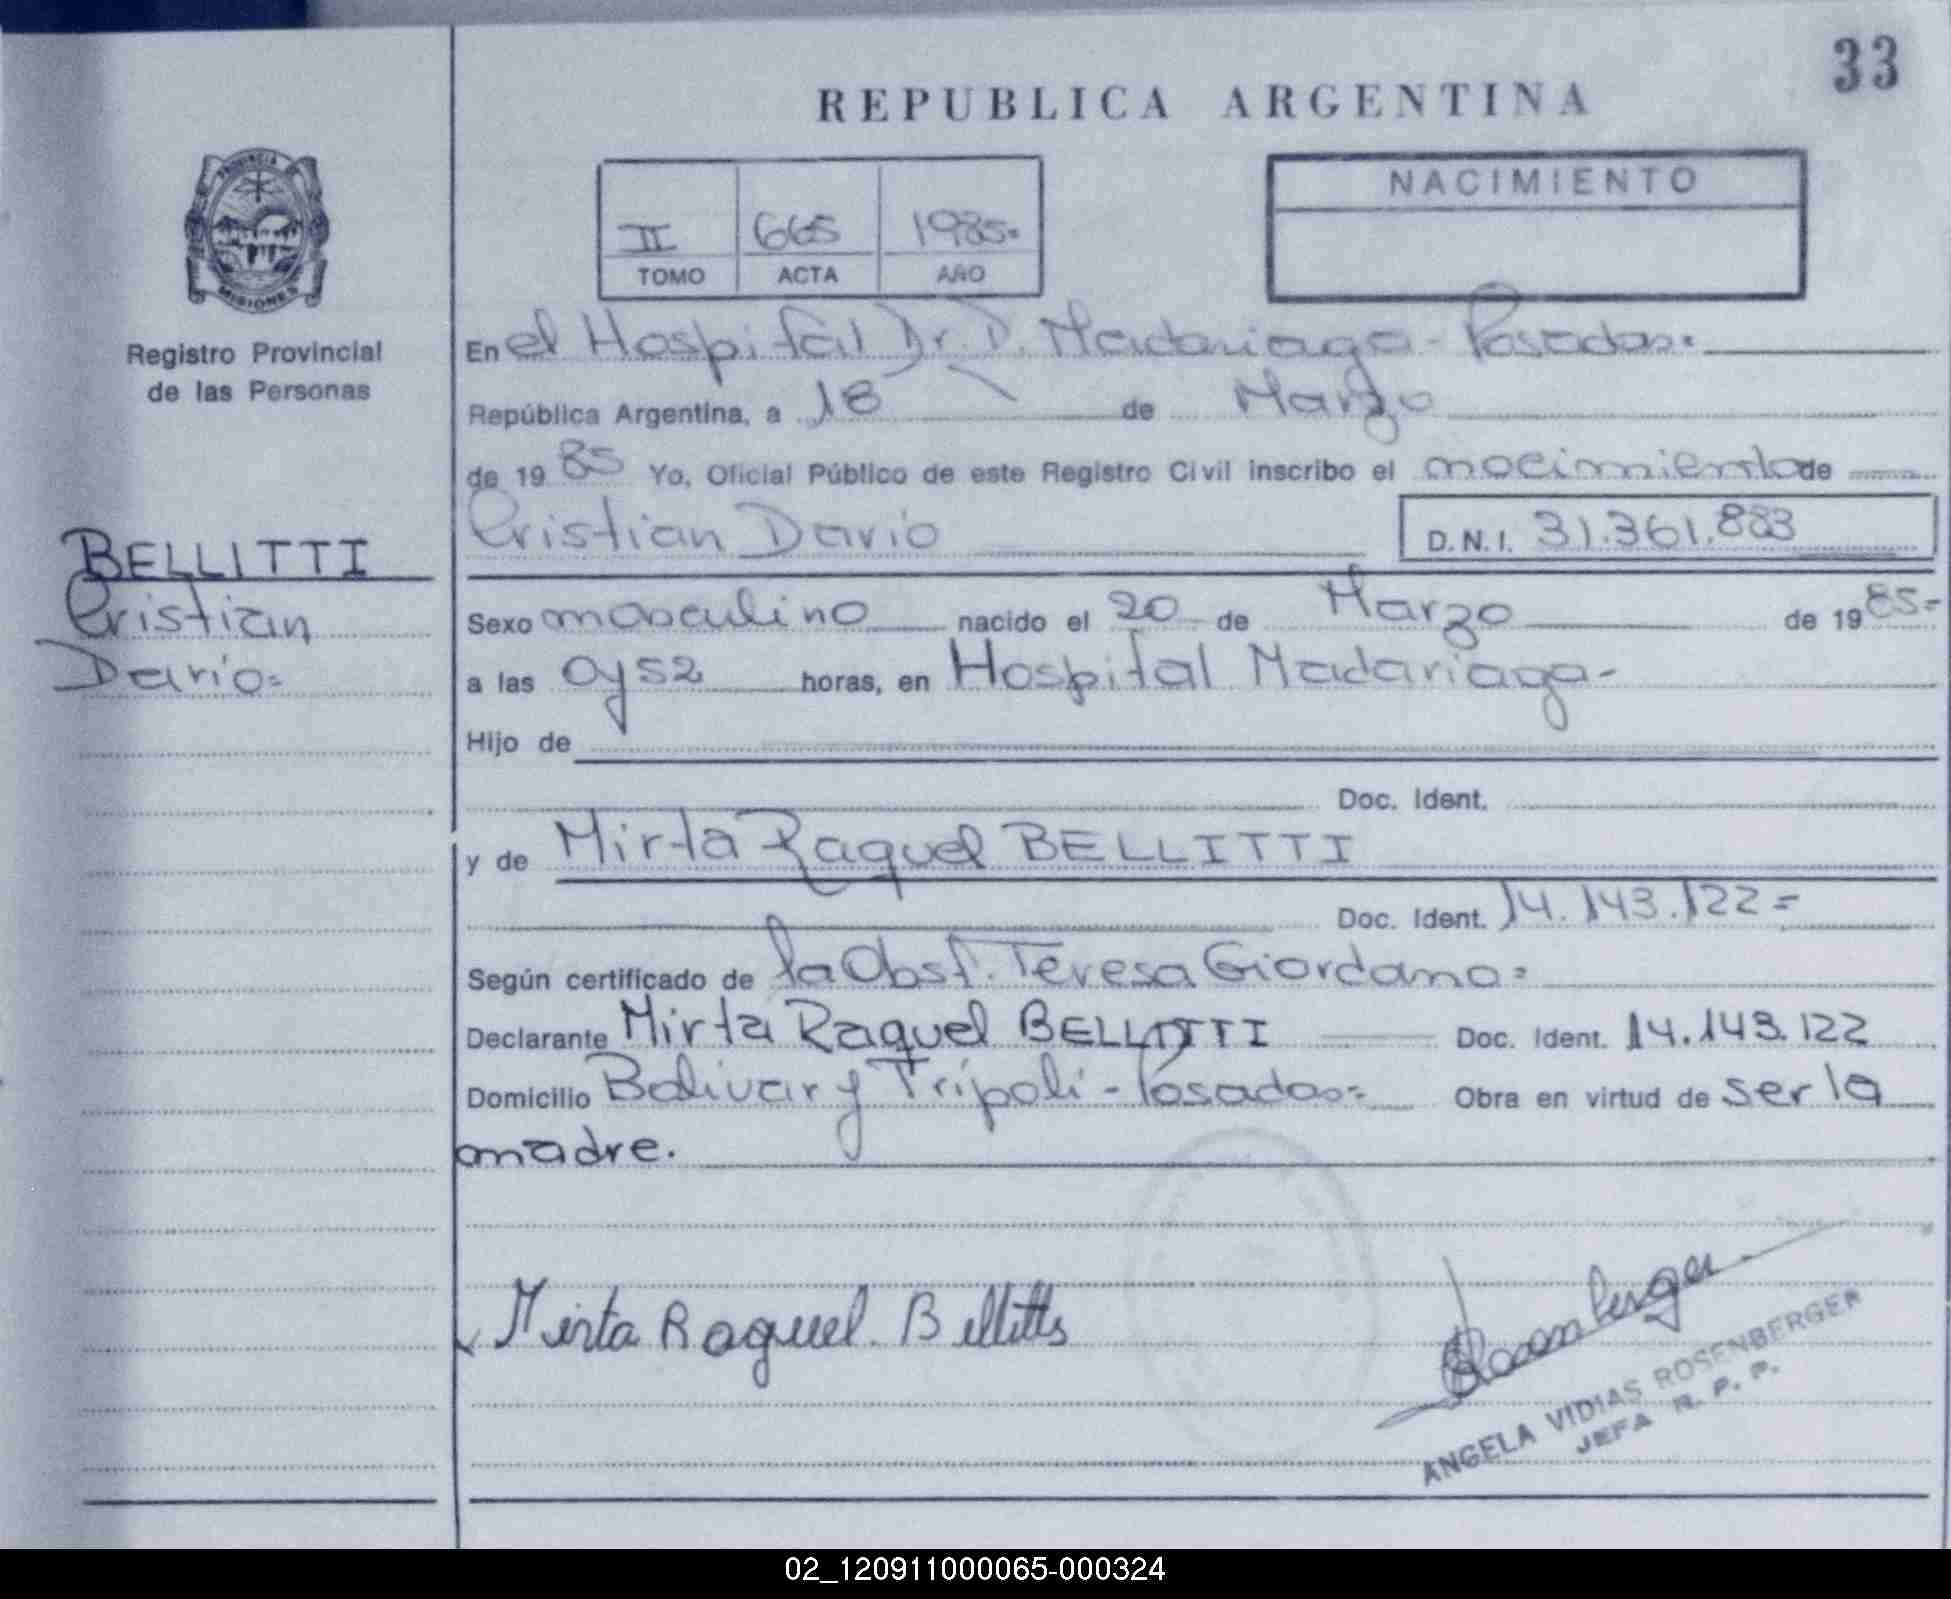 33
REPUBLICA ARGENTINA
PROVINCIA
MISIONES
Registro Provincial
de las Personas
II 665 1985.-
TOMO ACTA AÑO
NACIMIENTO
En el Hospital Dr. D. Madariaga - Posadas.
República Argentina, a 18 de Marzo
de 19 85 Yo, Oficial Público de este Registro Civil inscribo el nacimiento de
Cristian Dario D.N.I. 31.361.883
BELLITTI
Cristian
Dario=
Sexo masculino nacido el 20 de Marzo de 19 85.-
a las 0y52 horas, en Hospital Madariaga-
Hijo de
Doc. Ident.
y de Mirta Raquel BELLITTI
Doc. Ident. 14.143.122=
Según certificado de la Obst. Teresa Giordano=
Declarante Mirta Raquel BELLITTI Doc. Ident. 14.143.122
Domicilio Bolivar y Trípoli - Posadas= Obra en virtud de ser la
madre.
Mirta Raquel. Bellitti
ANGELA VIDIAS ROSENBERGER
JEFA R. P. P.
02_120911000065-000324